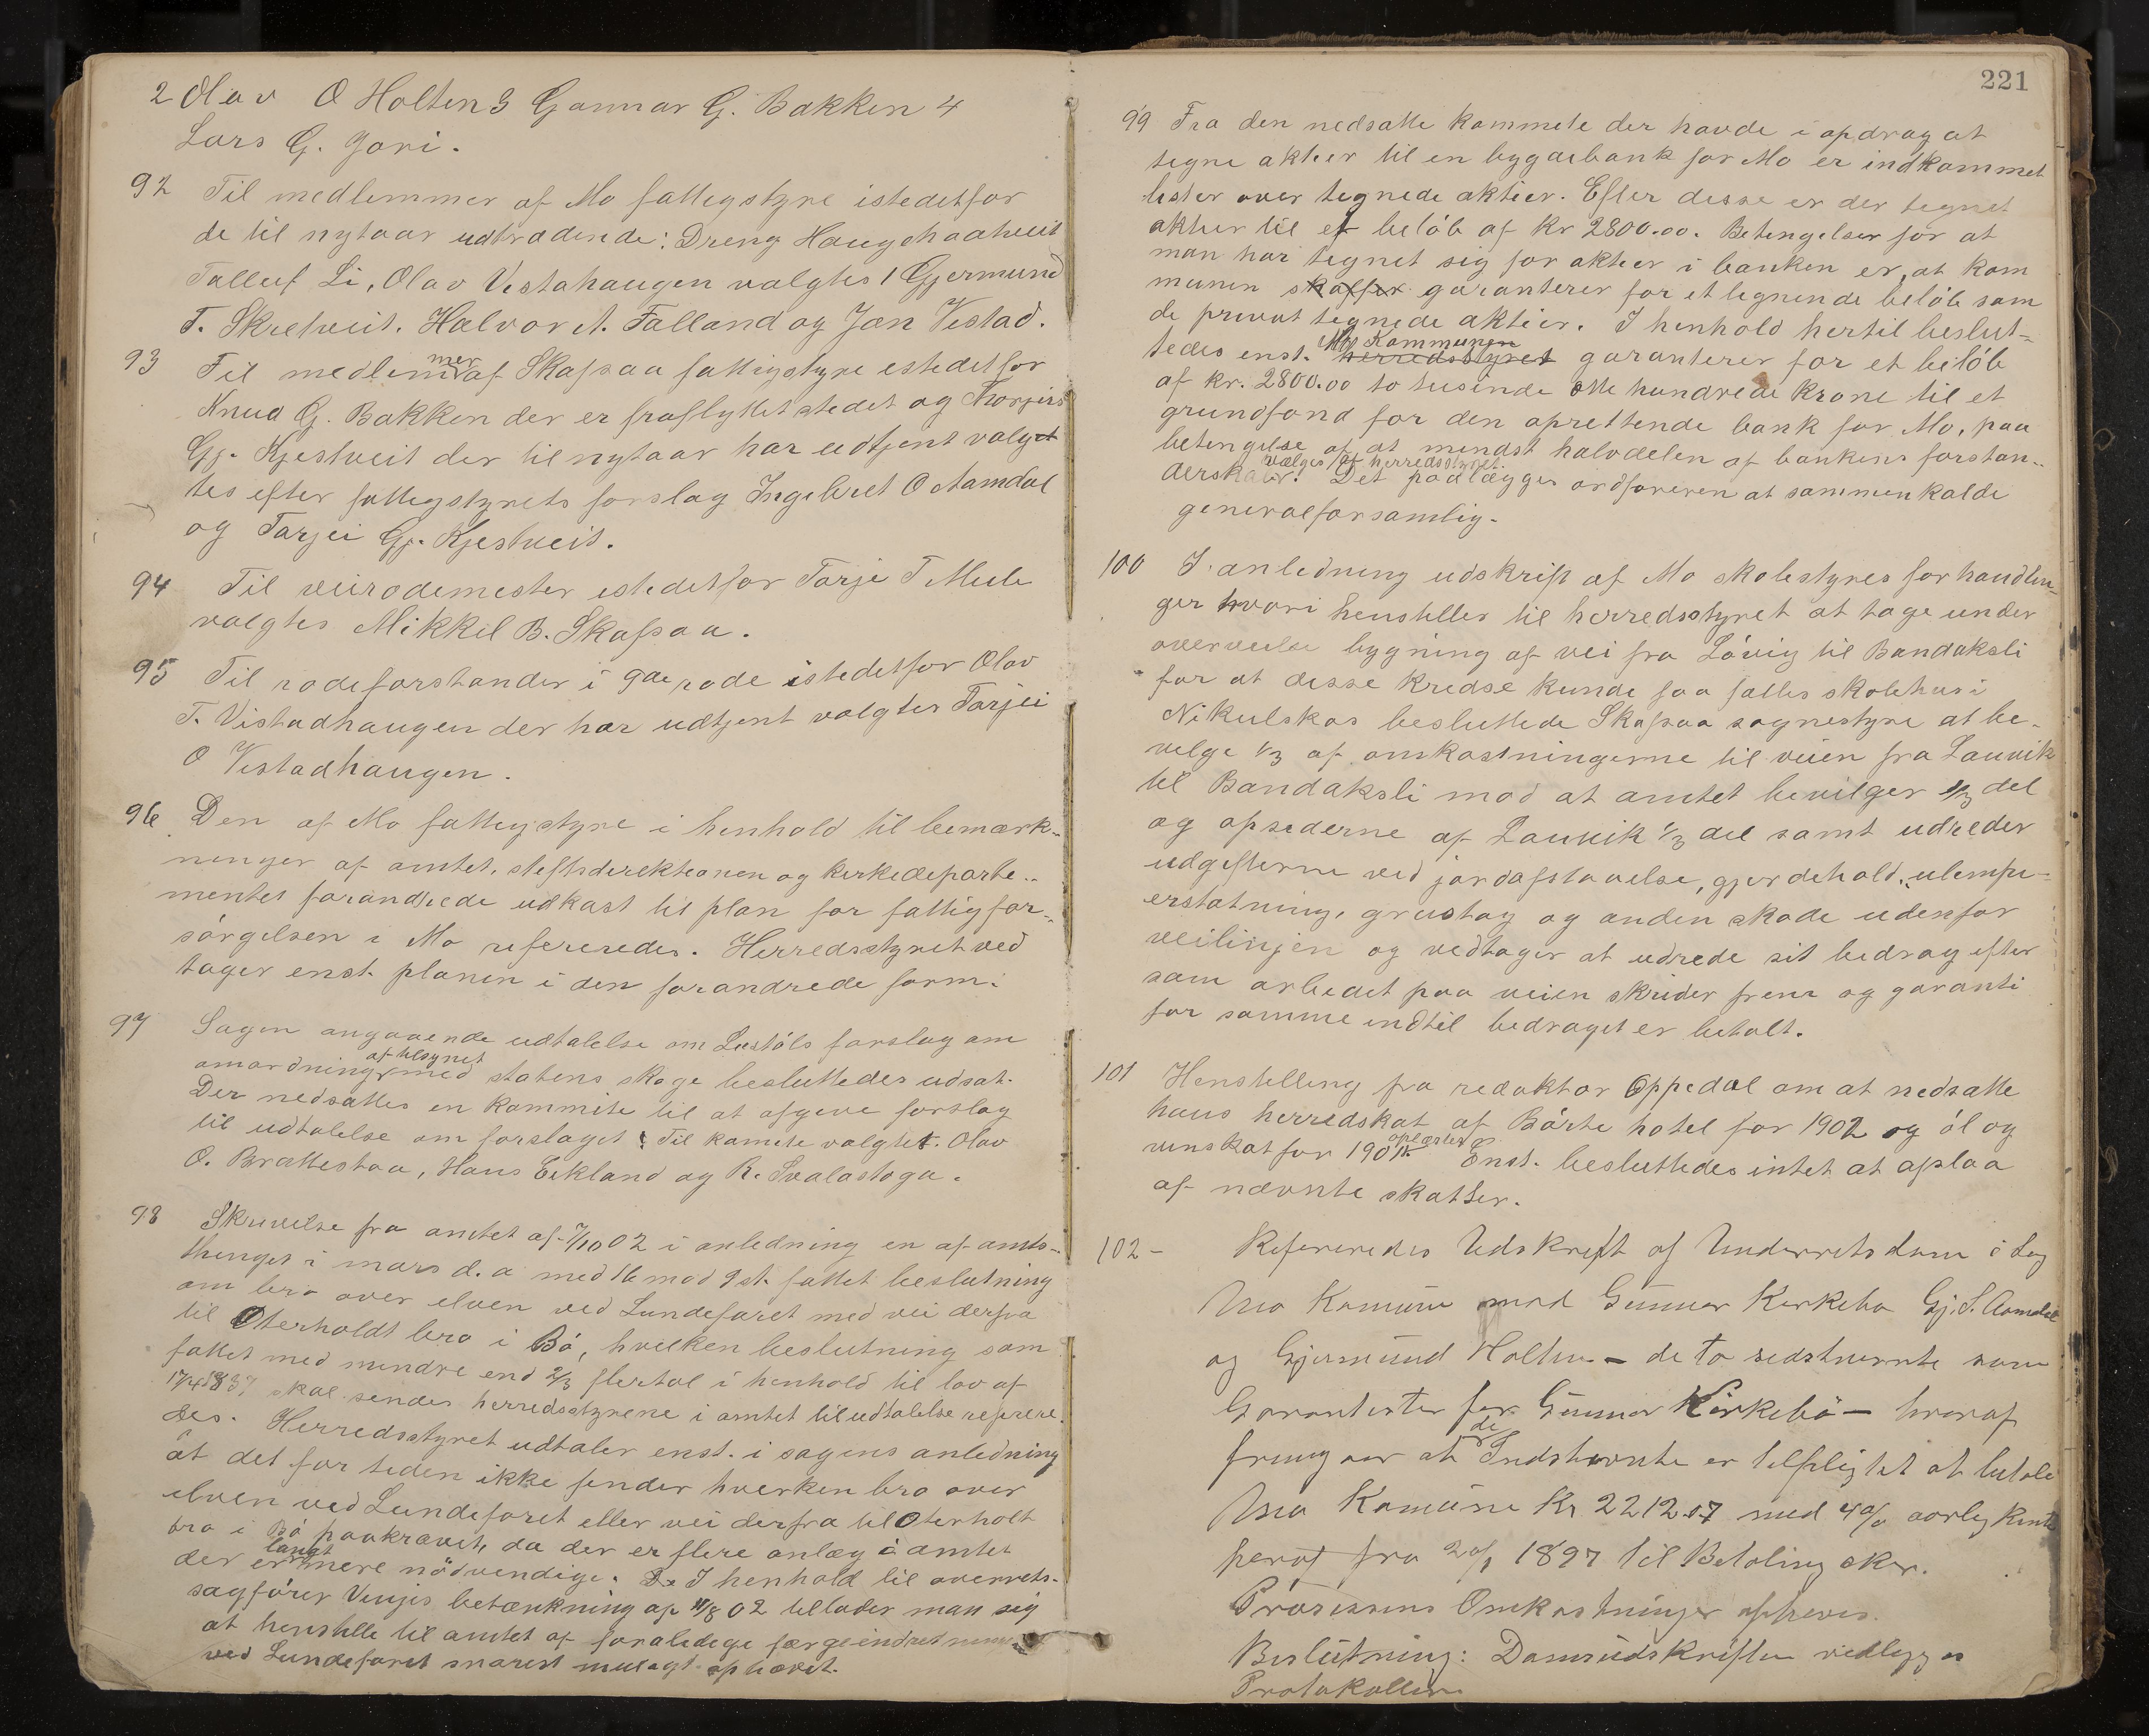 2 Olav O Holten 3 Gunnar G. Bakken 4
Lars G. Jori.
92 Til medlemmer af Mo fattigstyre istedetfor
de til nytaar udtrædende: Dreng Haugehaatveit
Tallef Li, Olav Vistahaugen valgtes 1 Gjermund
T. Skretveit. Halvor A. Falland og Jæn Vestad.
93 Til medlemmer af Skafsaa fattigstyre estedetfor
Knud G. Bakken der er fraflyttet stedet og Thorgies
Gj. Kjestveit der til nytaar har udtjent valg
tes efter fattegstyrets forslag Ingebret O Aamdal
og Tarjei Gj. Kjestveit.
94 Til veirodemester estedetfor Tarje T Mule
valgtes Mikkel B. Skafsaa.
95 Til rodeforstander i 9de rode istedetfor Olav
T. Vistadhaugen der har udtjent valgtes Tarjei
O Vestadhaugen.
96 Den af Mo fattegstyre i henhold til bemærk-
ninger af amtet, steftsdirektionen og kirkedeparte-
mentet forandrede udkast til plan for fattigfor-
sørgelsen i Mo refereredes. Herredsstyret ved
tager enst. planen i den forandrede form.
97 Sagen angaaende udtalelse om Lustøls forslag om
omordning af tilsynet med statens skoge besluttedes udsat.
Der nedsattes en kommite til at afgeve forslag
til udtalelse om forslaget. Til komete valgtet. Olav
O. Brattestaa, Hans Eekland og R. Svalastoga.
98 Skrivelse fra amtet af 7/10 02 i anledning en af amts-
thinget i mars d. a med 16 mod 9 st. fattet beslutning
om bro over elven ved Lundefaret med vei derfra
til Oterholdt bro i Bø, hvilken beslutning som
fattet med mindre end 2/3 flertal i henhold til lov af
17/4 1837 skal sendes herredsstyrene i amtet til udtalelse refere-
des. Herredsstyret udtaler enst. i sagens anledning
at det for teden ikke finder hverken bro over
elven ved Lundefaret eller vei derfra til Oterholt
bro i Bø paakrævet, da der er flere anlæg i amtet
der er langt mere nödvendige. I henhold til overrets-
sagfører Vinjes betænkning af 11/8 02 tillader man sig
at henstille til amtet at foraledege færgeindretningen
ved Lundefaret snarest muligt ophævet.
221
99 Fra den nedsatte kommete der havde i opdrag at
tegne aktier til en bygdebank for Mo er indkommet
lister over tegnede aktier. Efter desse er der tegnet
aktier til et beløb af kr 2800.00. Betingelser for at
man har tegnet sig for aktier i banken er, at kom
munen skaffer garanterer for et lignende beløb som
de privat tegnede aktier. I henhold hertil beslut-
tedes enst. Mo Kommunen herredsstyret garanterer for et beløb
af kr. 2800.00 to tusinde otte hundrede krone til et
grundfond for den oprettende bank for Mo, paa
betingelse af at mindst halvdelen af bankens forstan-
derskab vælges af herredsstyret. Det paalægges ordføreren at sammenkalde
generalforsamlig.
100 I anledning udskrift af Mo skolestyres forhandlin-
ger hvori henstilles til herredsstyret at tage under
overveielse bygning af vei fra Løvig til Bandaksli
for at desse kredse kunde faa fælles skolehus i
Nikulskas besluttede Skafsaa sognestyre at be-
velge 1/3 af omkostningerne til veien fra Lauvik
til Bandaksli mod at amtet bevilger 1/3 del
og opsederne af Lauvik 1/3 del samt udreder
udgifterne ved jordafstaaelse, gjerdehold, ulempe-
erstatning, grustag og anden skade udenfor
veilinjen og vedtager at udrede sit bedrag efter
som arbeidet paa veien skrider frem og garanti
for samme indtil bedraget er betalt.
101 Henstelling fra redaktør Oppedal om at nedsatte
hans herredskat af Børte hotel for 1902 og øl og
vinskat for 1901 oplæstes. Enst. besluttedes intet at afslaa
af nævnte skatter.
102 - Refereredes Udskrift af Underretsdom i Sag
Mo Komune mod Gunnar Kirkebø Gj. S. Aamdal
og Gjermund Holten - de to sidstnævnte som
Garantister for Gunnar Kirkebø - hvoraf
fremgaar at de Indstævnte er tilpligtet at betale
Mo Komune Kr 2212.07 med 4% aarlig Rente
heraf fra 20/1 1897 til Betaling sker.
Processens Omkostninger ophæves.
Beslutning: Domsudskriften vedlegges
Protokollen